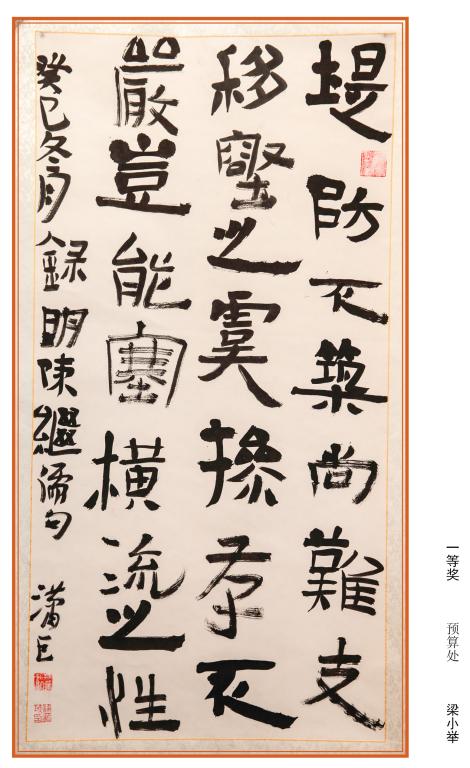 堤防不築尚難支
移壑之虞操存不
嚴豈能塞橫流之性
癸巳冬月錄明陳繼儒句
一等奖 预算处 梁小举